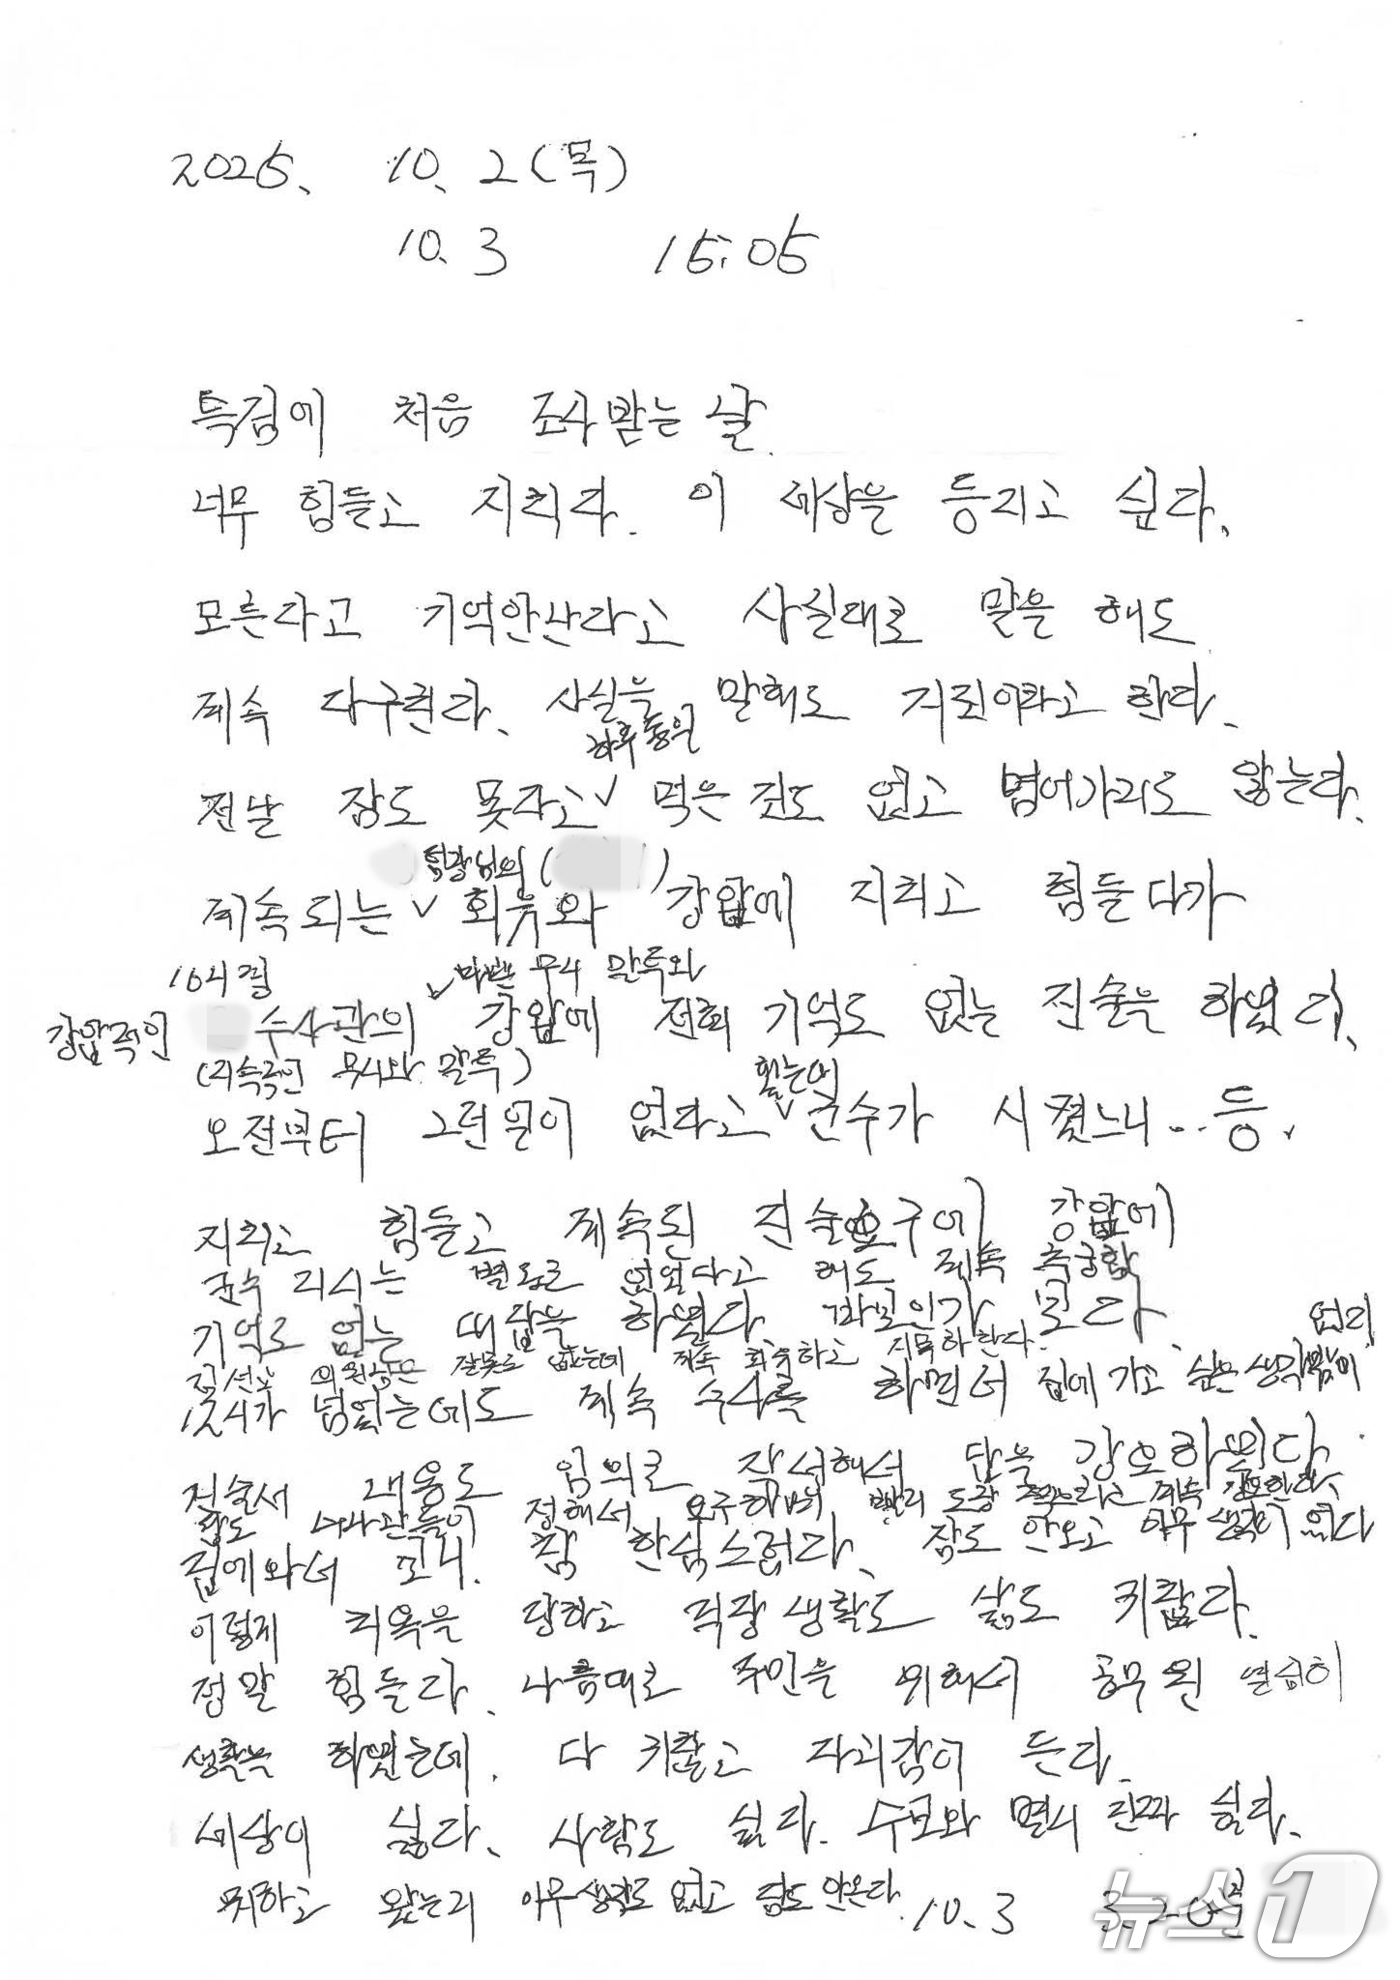 2025. 10. 2(목)
10. 3 15:05
특검에 처음 조사받는 날.
너무 힘들고 지친다. 이 세상을 등지고 싶다.
모른다고 기억안난다고 사실대로 말을 해도
계속 다구친다. 사실을 말해도 거짓이라고 한다.
하루종일
전날 잠도 못자고 ✓ 먹은 것도 없고 벙어가리도 않는다.
팀장님의 ( )
계속되는 ✓ 회유와 강압에 지치고 힘들다가
10시쯤 ✓ 무시 말투와
강압적인 수사관의 강압에 전혀 기억도 없는 진술을 하였다.
(지속적인 무시와 말투)
했는데
오전부터 그런일이 없다고 ✓ 군수가 시켰느니... 등.
지치고 힘들고 계속된 진술요구에 강압에
군수 지시는 별도로 없었다고 해도 계속 추궁함
기억도 없는 대답을 하였다. 바보인가 보다.
김선교 의원님은 잘못도 없는데 계속 회유하고 지목하란다. 없다
12시가 넘었는데도 계속 수사를 하면서 집에 가고 싶은 생각밖이
진술서 내용도 임의로 작성해서 답을 강요하였다.
답도 수사관들이 정해서 요구하며 빨리 도장 찍으라고 계속 강요한다.
집에와서 보니. 참 한심스럽다. 잠도 안오고 아무 생각이 없다
이렇게 치욕을 당하고 직장생활도 삶도 귀찮다.
정말 힘들다. 나름대로 주민을 위해서 공무원 열심히
생활을 하였는데. 다 귀찮고 자괴감이 든다.
세상이 싫다. 사람도 싫다. 수모와 멸시 진짜 싫다.
뭐하고 왔는지 아무생각도 없고 잠도 안온다. 10. 3 3:20분
뉴스1